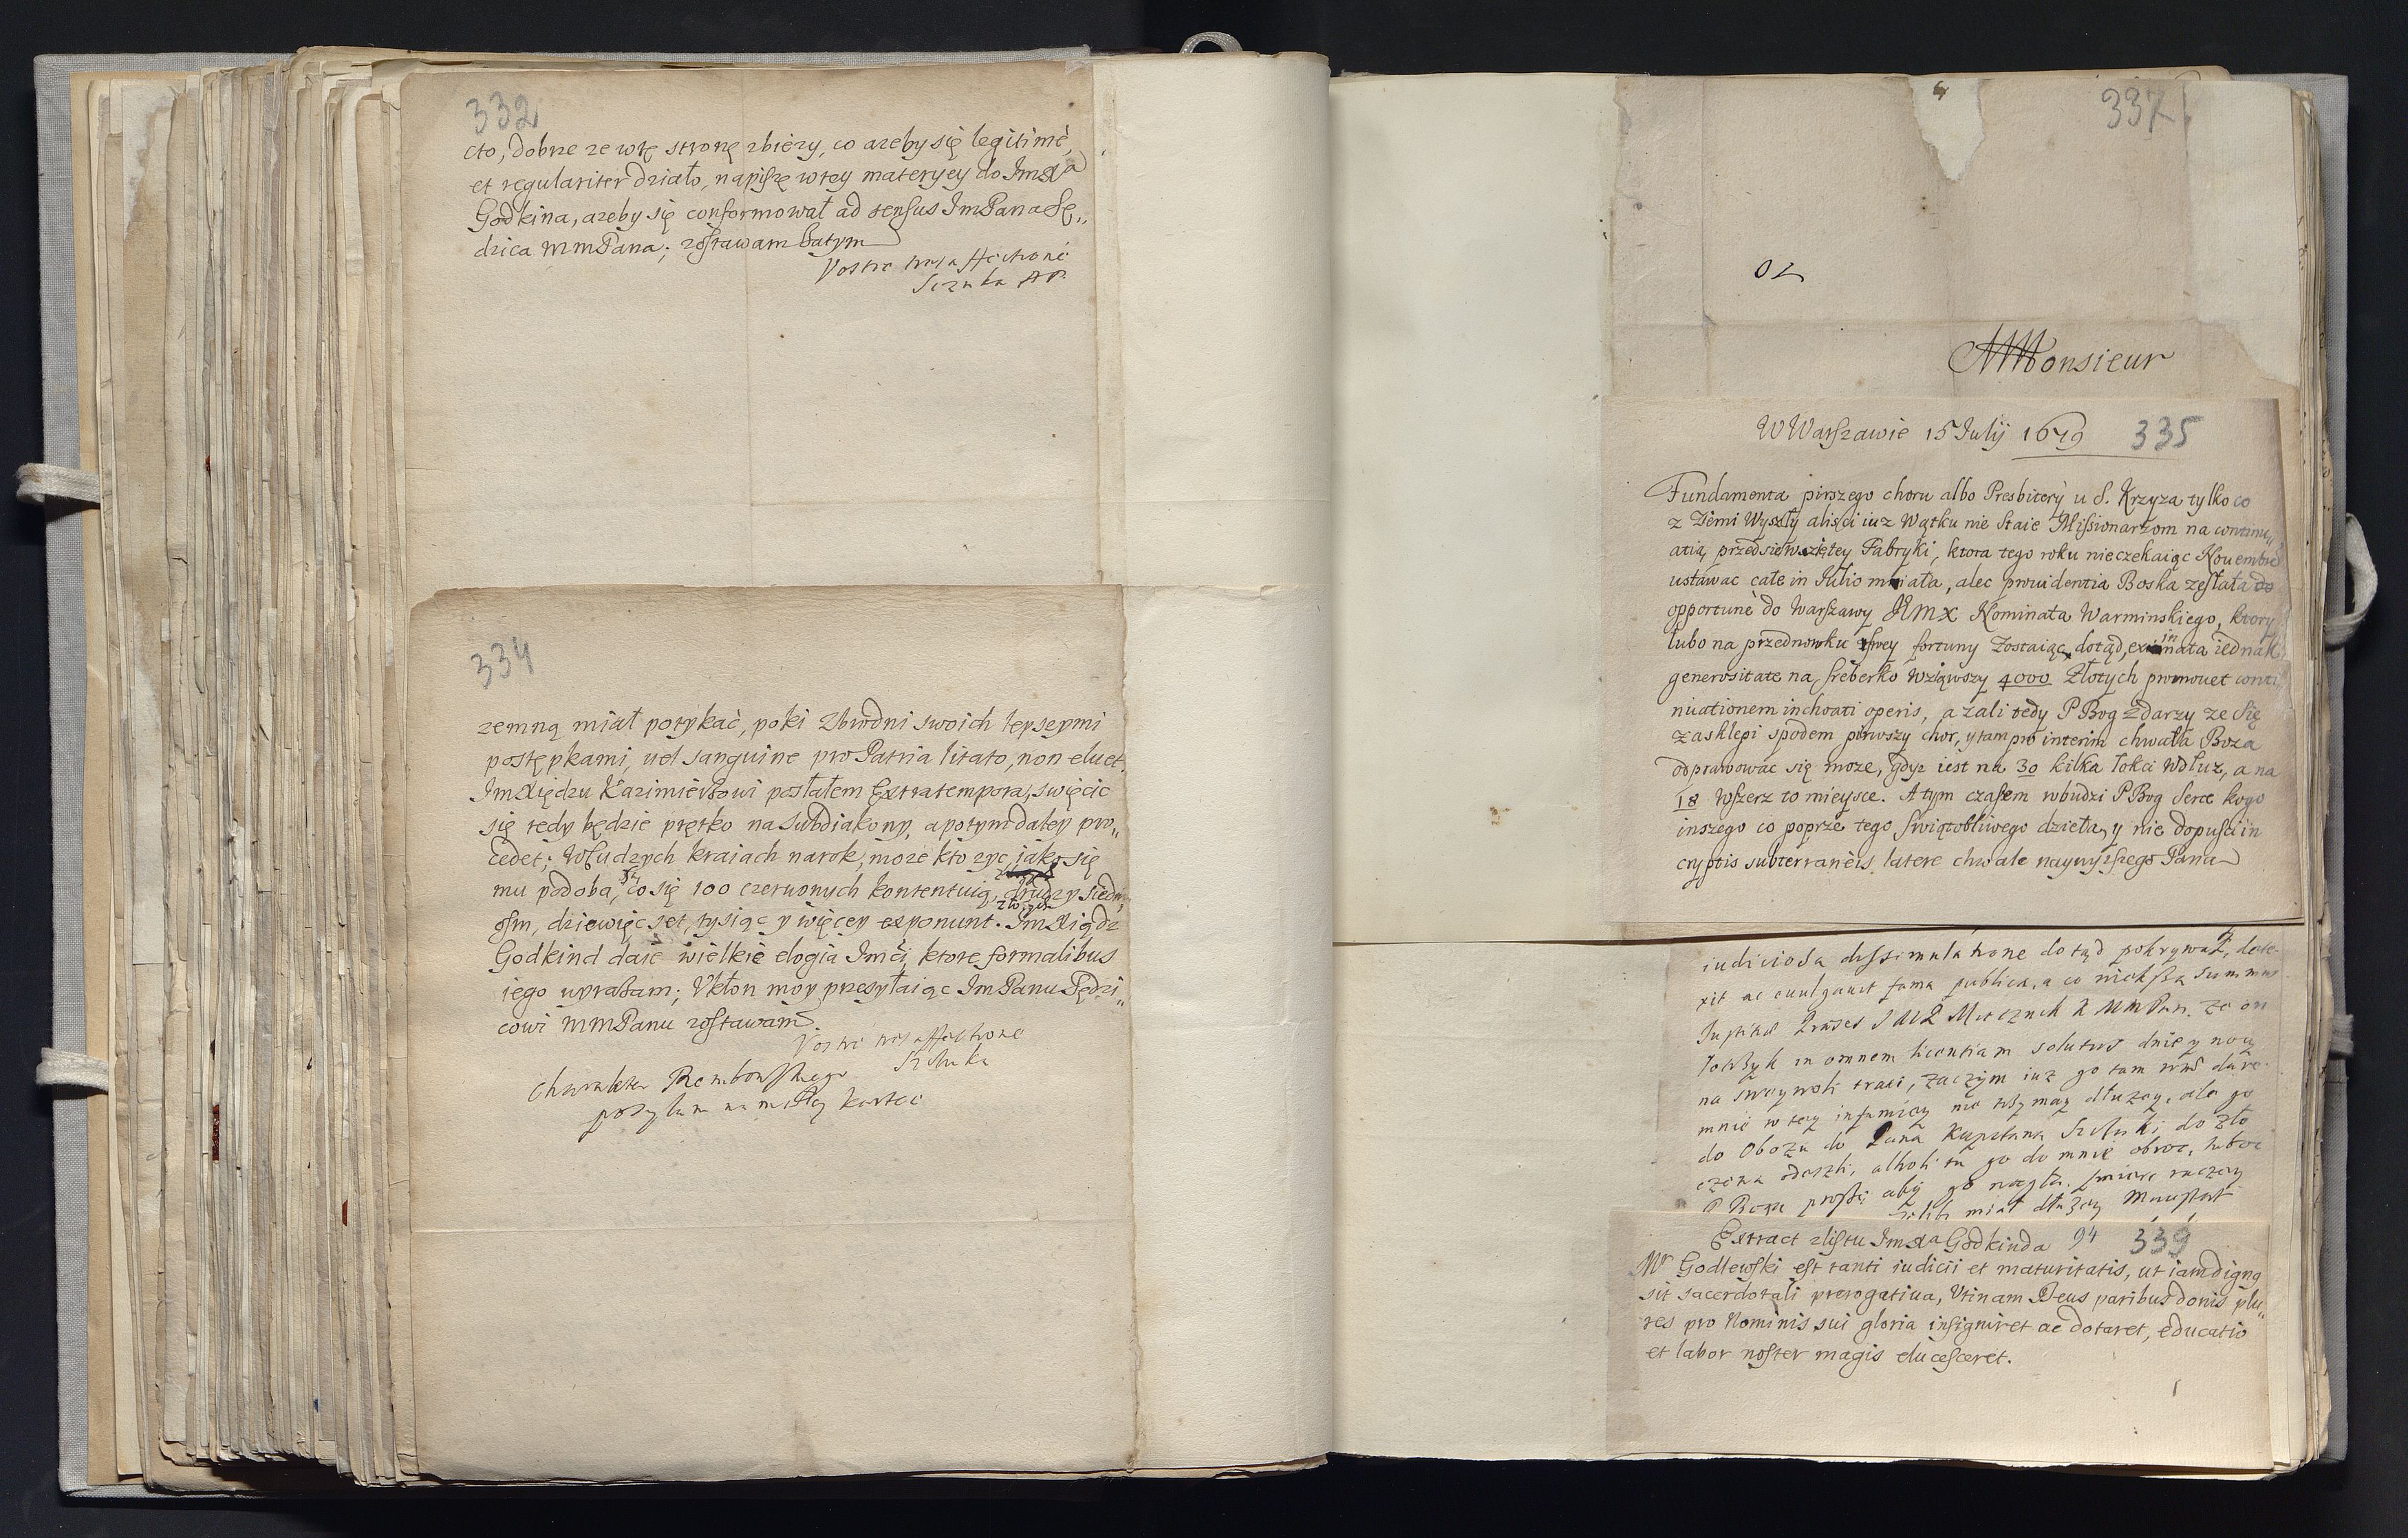 332
cto, dobrze ze w tę stronę zbieży, co ażeby się legitimè,
et regulariter działo, napiszę w tey materyey do ImXa
Godkina, ażeby się conformował ad sensus ImPana Sę„
dzica MmPana; zostawam zatym
Vostre tres affectioné
Sczuka
334
zemną miał potykać, poki Zbrodni swoich lepszymi
postępkami, vel sanguine pro Patria litato, non eluet.
ImXiędzu Kazimierzowi posłałem Extratempora, swięcic
się tedy będzie prętko na Subdiakony, a potym daley pro„
cedet; W Cudzych kraiach na rok, może kto żyć, iako się
mu podoba, są co się 100 czerwonych kontentuią, drudzy siedm,
osm, dziewięc set, tysiąc y więcey exponunt. ImXiądz
Godkind daie wielkie elogia Imci, ktore formalibus
iego wyrażam; Vkłon moy przesyłaiąc ImPanu Sędzi„
cowi MmPanu zostawam.
Vostre tres affectioné
Sczuka
Charakter Rembowskiego
posylam na małey kartce
337
Monsieur
W Warszawie 15 Julij 1679 335
Fundamenta pirszego choru albo Presbitery u S. Krzyza tylko co
z Ziemi Wyszły alisci iuz Wątku nie Staie Missionarzom na continu„
atią przedsiewziętey Fabryki, ktora tego roku nieczekaiąc Nouembra
ustawac cale in Julio miała, alec prouidentia Boska zesłała
opportunè do Warszawy JEmX Nominata Warminskiego, ktory
lubo na przednowku swey fortuny zostaiąc dotąd, exinata iednak
generositate na sreberko wziąwszy 4000 Złotych promouet conti„
nuationem inchoati operis, a zali tedy P Bog zdarzy ze się
zasklepi spodem pierwszy chor, y tam pro interim chwała Boza
odprawować się moze, gdyz iest na 30 kilka łokci wdłuz, a na
18 wszerz to mieysce. A tym czasem wbudzi P Bog Serce kogo
inszego co poprze tego swiątobliwego dzieła, y nie dopusci in
cryptis subterraneis latere chwale naywyzszego Pana
iudiciosa dissimulatione dotąd pokrywał, dete-
xit ac euulgauit fama publica, a co większa summus
in omnem licentiam solutus dnie y nocy
na sweywoli traci, zaczym iuz go tam
mnie w tey infamiey nie trzymay dłuzey, ale go
do Obozu do Pana Kapitana Sczuki do Zło
czowa odeszli, alboli tu go do mnie obroc, lubo
P Boga proszę aby go nagła smierc raczey
miał dłuzey
Extract z listu ImXa Godkinda 94 339
Mr Godlewski est tanti iudicii et maturitatis, ut iam dignq
sit sacerdotali prerogatiua, Vtinam Deus paribus donis plu„
res pro Nominis sui gloria insigniret ac dotaret, educatio
et labor noster magis elucesceret.